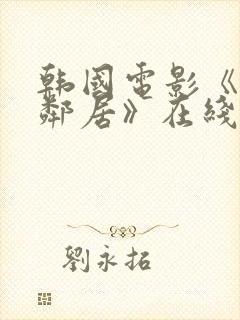 韩國電影《
鄰居》在綫
劉永拓